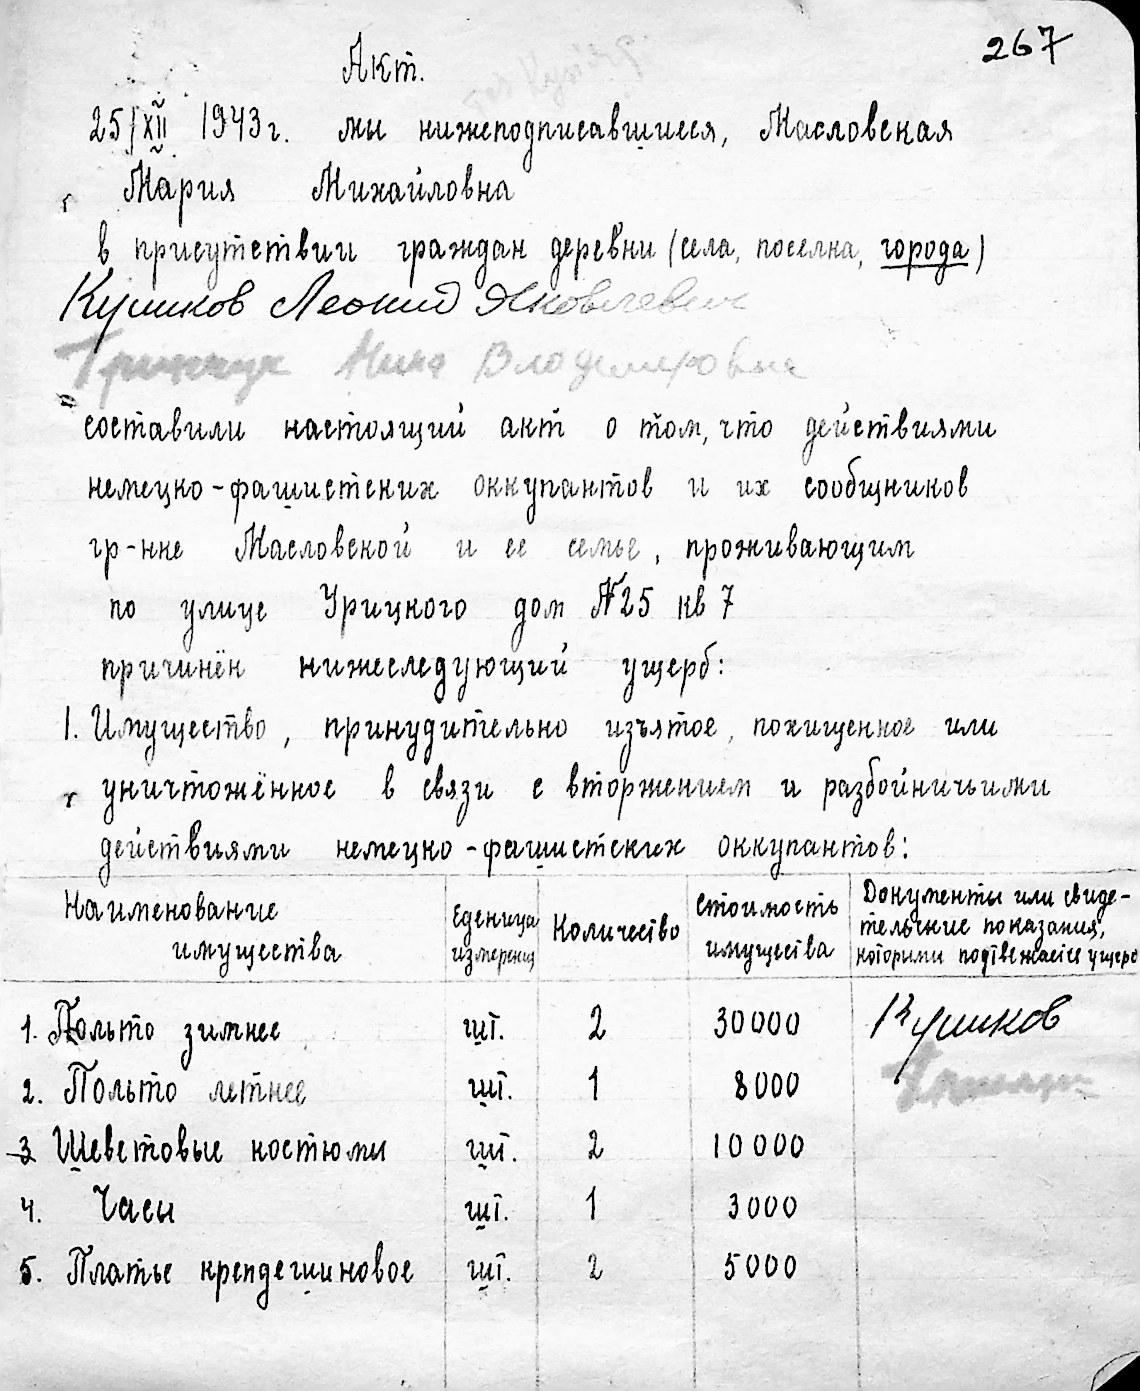 267
Акт.
25/XII 1943 г. мы нижеподписавшиеся, Масловская
Мария Михайловна
в присутствии граждан деревни (села, поселка, города)
Кушков Леонид Яковлевич
Нина Владимировна
составили настоящий акт о том, что действиями
немецко-фашистских оккупантов и их сообщников
гр-нке Масловской и ее семье, проживающим
по улице Урицкого дом №25 кв 7
причинён нижеследующий ущерб:
1. Имущество, принудительно изъятое, похищенное или
уничтожённое в связи с вторжением и разбойничьими
действиями немецко-фашистских оккупантов:
Наименование имущества
Еденица измерения
Количество
Стоимость имущества
Документы или свиде-
тельские показания,
которыми подтвежается ущерб
1. Польто зимнее шт. 2 30000 Кушков
2. Польто летнее шт. 1 8000
3 Шеветовые костюмы шт. 2 10000
4. Часы шт. 1 3000
5. Платье крепдешиновое шт. 2 5000